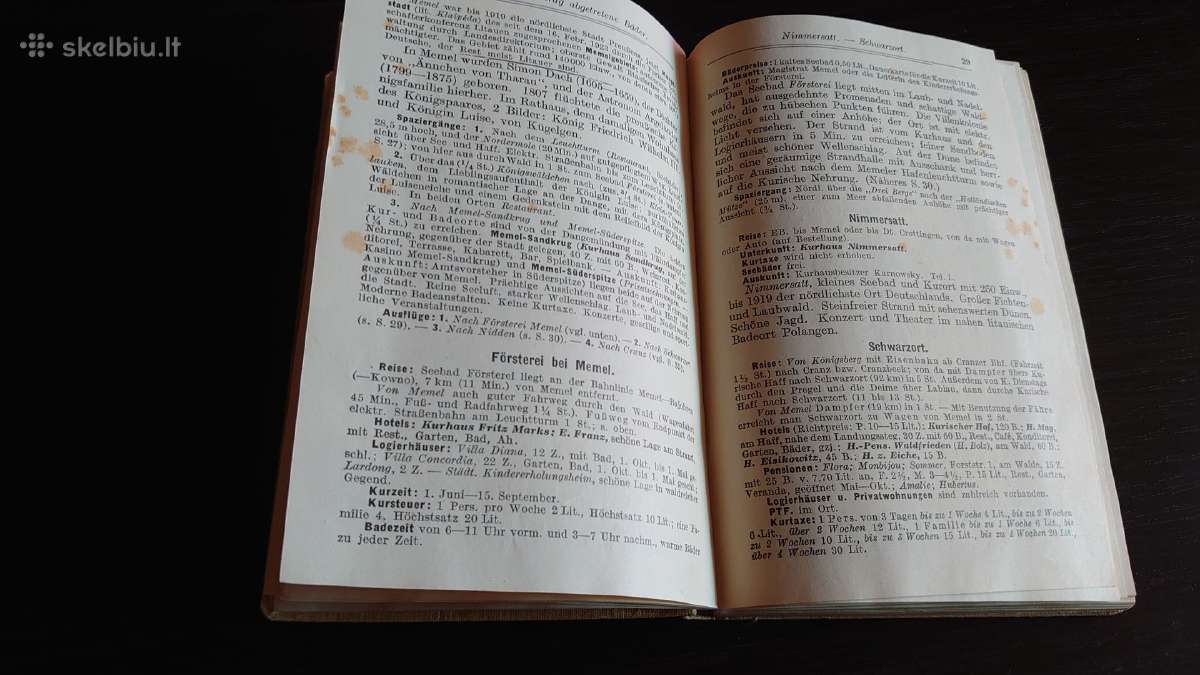 skelbiu.lt
abgetretene Bäder.
Memel war bis 1919 die nördlichste Stadt Preußens
stadt (lit. Klaipėda) des seit dem 16. Febr. 1923 durch
schafterkonferenz Litauen zugesprochenen Memelgebiets
waltung durch Landesdirektorium;
mächtigter. Das Gebiet zählt rund 140000
Deutsche, der Rest meist Litauer sind.
In Memel wurden Simon Dach (1605—1659), der Dichter
von „Ännchen von Tharau“, und der Astronom Argelander
(1799—1875) geboren. 1807 flüchtete die preußische
nigsfamilie hierher. Im Rathaus, dem damaligen Wohnsitz
des Königspaares, 2 Bilder: König Friedrich Wilhelm III.
und Königin Luise, von Kügelgen.
Spaziergänge: 1. Nach dem Leuchtturm (Restaurant),
28,5 m hoch, und der Nordermole (20 Min.) auf gutgepflegtem
sicht über See und Haff. Elektr. Straßenbahn bis
S. 27); von hier aus durch Wald in 1 St. zum Seebad Försterei
2. Über das (¼ St.) Königswäldchen nach (zus. ¾ St.)
lauken, dem Lieblingsaufenthalt der Königin Luise,
Wäldchen in romantischer Lage an der Dange, mit
der Luiseneiche und einem Gedenkstein mit dem Reliefbild der Königin
Luise. In beiden Orten Restaurant.
3. Nach Memel-Sandkrug und Memel-Süderspitze. Die beiden
Kur- und Badeorte sind von der Dangemündung mit
(¼ St.) zu erreichen. Memel-Sandkrug (Kurhaus Sandkrug, auf der
Nehrung, gegenüber der Stadt gelegen, 40 Z. mit 60 B.,
ditorei, Terrasse, Kabarett, Bar, Spielbank. — Auskunft:
Kasino Memel-Sandkrug) und Memel-Süderspitze (Privatwohnungen.
Auskunft: Amtsvorsteher in Süderspitze) liegen beide auf der
gegenüber von Memel. Prächtige Aussichten auf die See, das Haff und
die Stadt. Reine Seeluft, starker Wellenschlag. Laub- und Nadelwald.
Moderne Badeanstalten. Keine Kurtaxe. Konzerte, gesellige und sport-
liche Veranstaltungen.
Ausflüge: 1. Nach Försterei Memel (vgl. unten). — 2. Nach Schwarzort
(s. S. 29). — 3. Nach Nidden (s. S. 30). — 4. Nach Cranz (vgl. S. 35).
Försterei bei Memel.
Reise: Seebad Försterei liegt an der Bahnlinie Memel—Bajohren
(—Kowno), 7 km (11 Min.) von Memel entfernt.
Von Memel auch guter Fahrweg durch den Wald (Wagenfahrt
45 Min., Fuß- und Radfahrweg 1¼ St.). Fußweg vom Endpunkt der
elektr. Straßenbahn am Leuchtturm 1 St.; s. oben.
Hotels: Kurhaus Fritz Marks; E. Franz, schöne Lage am Strand,
mit Rest., Garten, Bad, Ah.
Logierhäuser: Villa Diana, 12 Z., mit Bad, 1. Okt. bis 1. Mai ge-
schl.; Villa Concordia, 22 Z., Garten, Bad, 1. Okt. bis 1. Mai geschl.;
Lardong, 2 Z. — Städt. Kindererholungsheim, schöne Lage in waldreicher
Gegend.
Kurzeit: 1. Juni—15. September.
Kursteuer: 1 Pers. pro Woche 2 Lit., Höchstsatz 10 Lit.; eine Fa-
milie 4, Höchstsatz 20 Lit.
Badezeit von 6—11 Uhr vorm. und 3—7 Uhr nachm., warme Bäder
zu jeder Zeit.
Nimmersatt. — Schwarzort. 29
Bäderpreise: 1 kaltes Seebad 0,50 Lit., Dauerkarte für die Kurzeit 10 Lit.
Auskunft: Magistrat Memel oder die Leiterin des Kindererholungs-
heims in der Försterei.
Das Seebad Försterei liegt mitten im Laub- und Nadel-
wald, hat ausgedehnte Promenaden und schattige Wald-
wege, die zu hübschen Punkten führen. Die Villenkolonie
befindet sich auf einer Anhöhe; der Ort ist mit elektr.
Licht versehen. Der Strand ist vom Kurhaus und den
Logierhäusern in 5 Min. zu erreichen; feiner Sandboden
und meist schöner Wellenschlag. Auf der Düne befindet
sich eine geräumige Strandhalle mit Ausschank und herr-
licher Aussicht nach dem Memeler Hafenleuchtturm sowie
auf die Kurische Nehrung. (Näheres S. 30.)
Spaziergang: Nördl. über die „Drei Berge“ nach der „Holländischen
Mütze“ (25 m), einer auf das Meer abfallenden Anhöhe mit prächtiger
Aussicht (¾ St.).
Nimmersatt.
Reise: EB. bis Memel oder bis Dt. Crottingen, von da mit Wagen
oder Auto (auf Bestellung).
Unterkunft: Kurhaus Nimmersatt.
Kurtaxe wird nicht erhoben.
Seebäder frei.
Auskunft: Kurhausbesitzer Karnowsky, Tel. 1.
Nimmersatt, kleines Seebad und Kurort mit 250 Einw.,
bis 1919 der nördlichste Ort Deutschlands. Großer Fichten-
und Laubwald. Steinfreier Strand mit sehenswerten Dünen.
Schöne Jagd. Konzert und Theater im nahen litauischen
Badeort Polangen.
Schwarzort.
Reise: Von Königsberg mit Eisenbahn ab Cranzer Bhf. (Fahrzeit
1½ St.) nach Cranz bzw. Cranzbeck; von da mit Dampfer übers Ku-
rische Haff nach Schwarzort (92 km) in 5 St. Außerdem von K. Dienstags
durch den Pregel und die Deime über Labiau, dann durchs Kurische
Haff nach Schwarzort (11 bis 13 St.).
Von Memel Dampfer (19 km) in 1 St. — Mit Benutzung der Fähre
erreicht man Schwarzort zu Wagen von Memel in 2 St.
Hotels (Richtpreis: P. 10—15 Lit.): Kurischer Hof, 120 B.; H. Mag,
am Haff, nahe dem Landungssteg, 30 Z. mit 60 B., Rest., Café, Konditorei,
Garten, Bäder, gzj.; H.-Pens. Waldfrieden (H. Bolz), am Wald, 60 B.;
H. Eisikowitz, 45 B.; H. z. Eiche, 15 B.
Pensionen: Flora; Monbijou; Sommer, Forststr. 1, am Walde, 15 Z.
mit 25 B. v. 7.70 Lit. an, F. 2½, M. 3—4½, P. 15 Lit., Rest., Garten,
Veranda, geöffnet Mai—Okt.; Amalie; Hubertus.
Logierhäuser u. Privatwohnungen sind zahlreich vorhanden.
PTF. im Ort.
Kurtaxe: 1 Pers. von 3 Tagen bis zu 1 Woche 4 Lit., bis zu 2 Wochen
6 Lit., über 2 Wochen 12 Lit., 1 Familie bis zu 1 Woche 6 Lit., bis
zu 2 Wochen 10 Lit., bis zu 3 Wochen 15 Lit., bis zu 4 Wochen 20 Lit.,
über 4 Wochen 30 Lit.